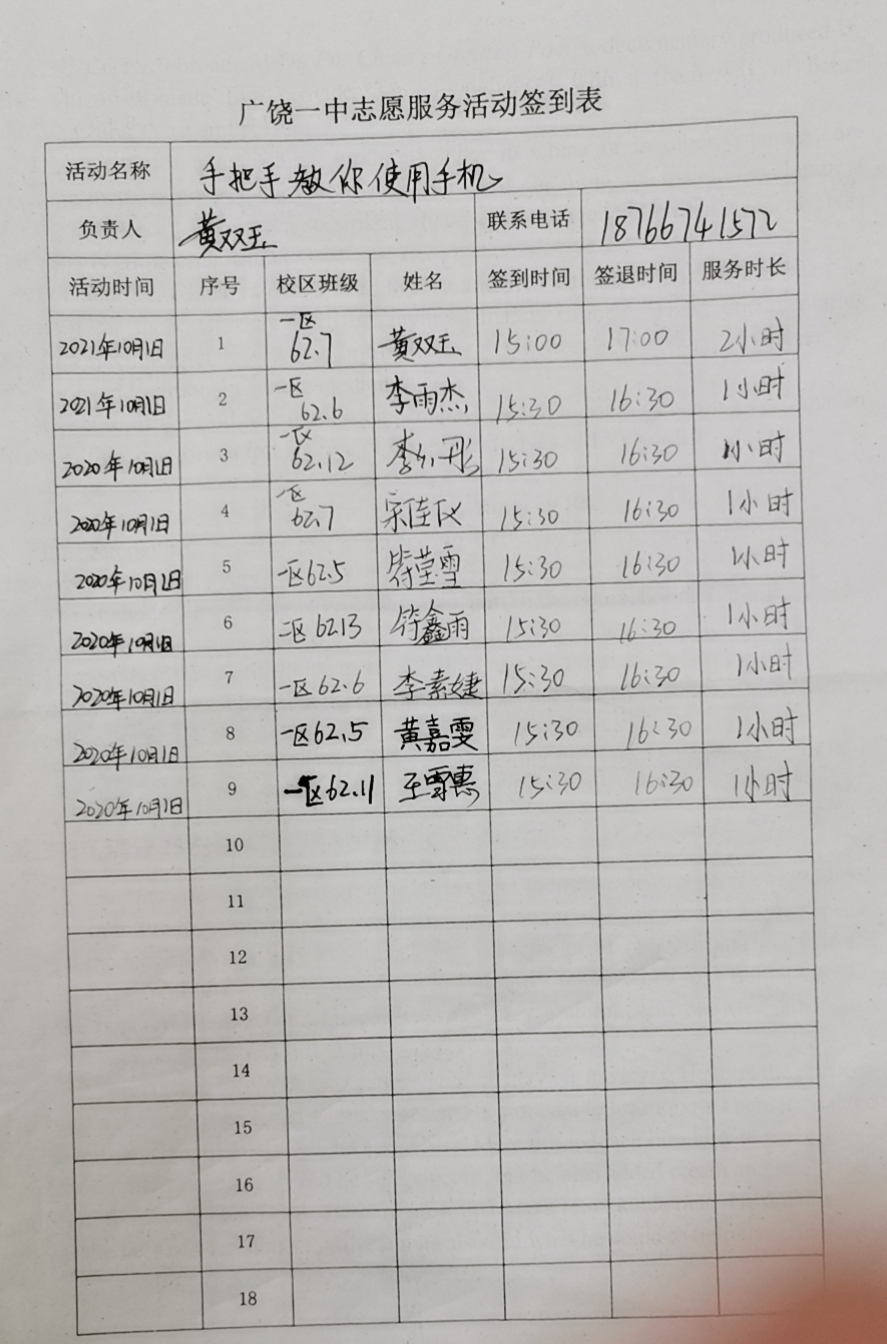 广饶一中志愿服务活动签到表
活动名称 手把手教你使用手机
负责人 黄双玉 联系电话 18766741572
活动时间 序号 校区班级 姓名 签到时间 签退时间 服务时长
2021年10月1日 1 一区 62.7 黄双玉 15:00 17:00 2小时
2021年10月1日 2 一区 62.6 李雨杰 15:30 16:30 1小时
2020年10月1日 3 一区 62.12 李 彤 15:30 16:30 1小时
2020年10月1日 4 一区 62.7 宋佳仪 15:30 16:30 1小时
2020年10月1日 5 一区62.5 莹雪 15:30 16:30 1小时
2020年10月1日 6 二区6213 符鑫雨 15:30 16:30 1小时
2020年10月1日 7 一区62.6 李素婕 15:30 16:30 1小时
2020年10月1日 8 一区62.5 黄嘉雯 15:30 16:30 1小时
2020年10月1日 9 一区62.11 15:30 16:30 1小时
10
11
12
13
14
15
16
17
18